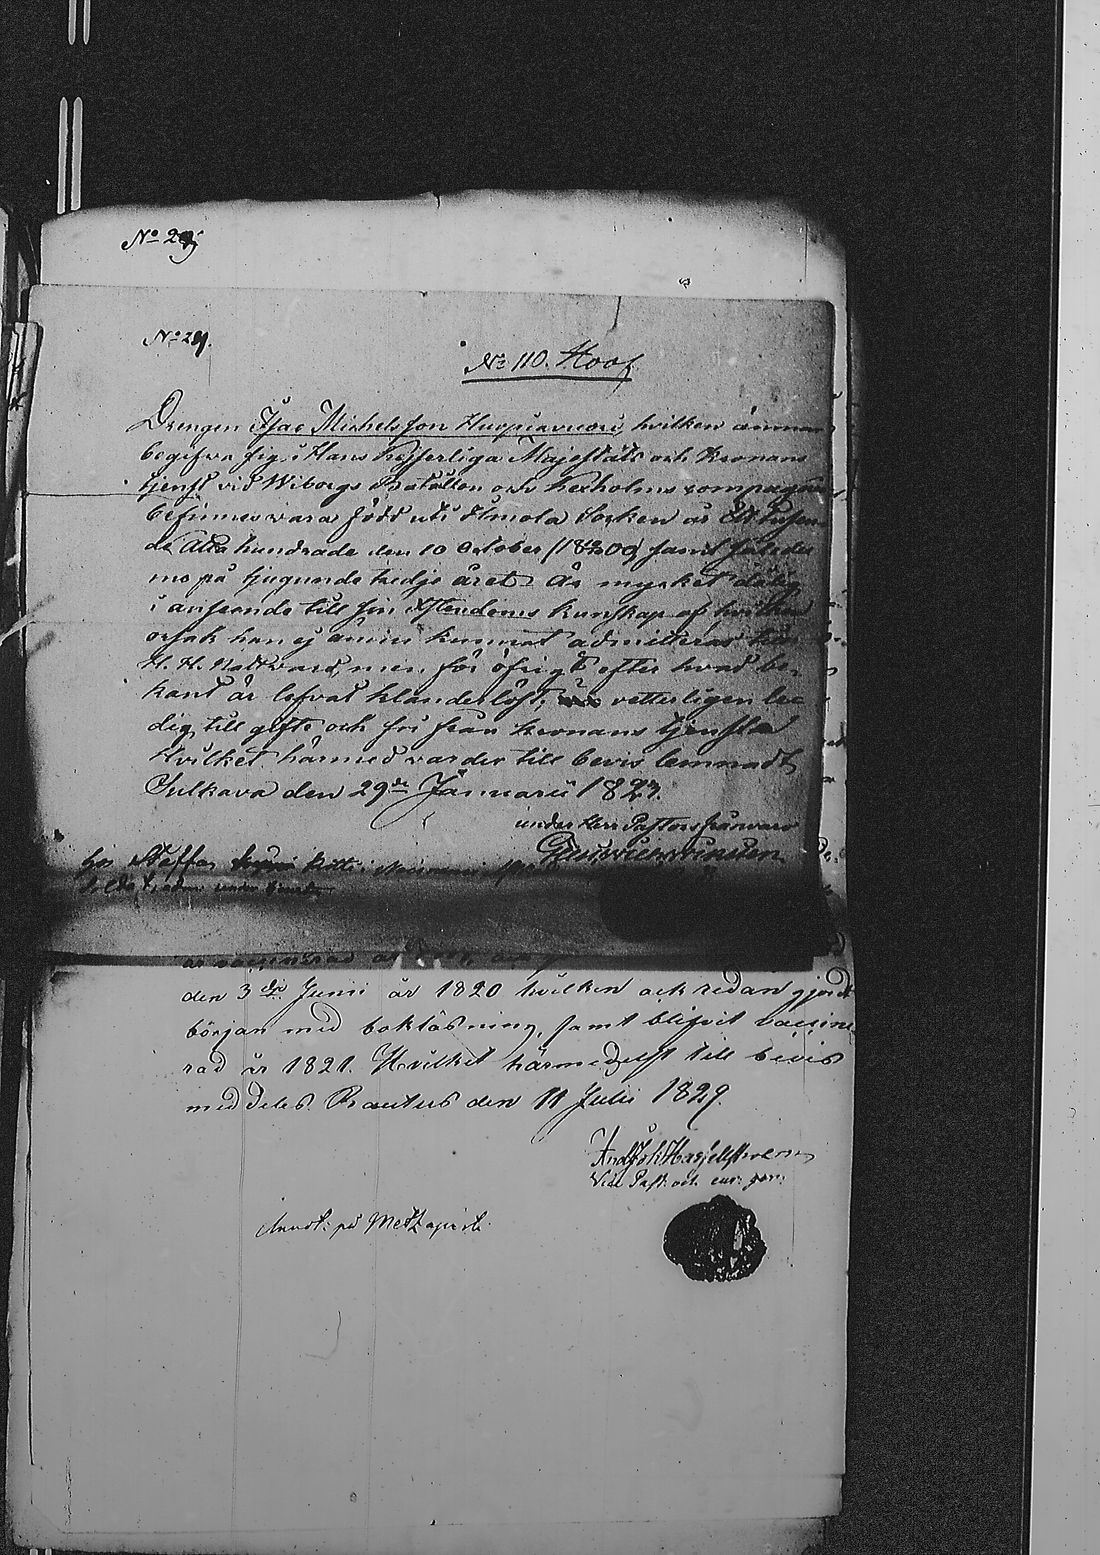 No 29
No 29.
No 110. Hoof
Drengen Isac Michelsson Huopiavuori hvilken ämnar
begifva sig i Hans Kejserliga Majestäts och Kronans
tjenst vid Wiborgs Bataillon och Kexholms compagnie
befinnes vara född uti Imola Socken år Ett tusen
de Atta hundrade den 10 October (1800) samt således
mo på tjugunde tredje året. Är mycket dålig
i anseende till sin Christendoms kunskap af hvilken
orsak han ej ännu kunnat admitteras till
H. H. Nattvard, men för öfrigt efter hvad be-
kant är lefvat klanderlöst, vetterligen le
dig till gifte och fri från Kronans tjenster
Hvilket härmed varder till bevis lemnadt
Sulkava den 29de Januarii 1823.
under Herr Pastors frånvaro
Steffan
är vaccinerad
den 3dje Junii år 1820 hvilken ock redan gjordt
början med bokläsning, samt blifvit vaccine
rad år 1821. Hvilket härmedelst till bevis
meddeles. Rautus den 11 Julii 1829.
Vice Past. och
Annot: på